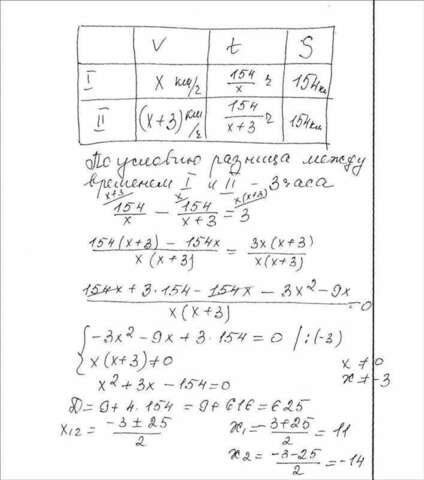 V t S
I x км/ч 154/x ч 154км
II (x+3) км/ч 154/(x+3) ч 154км
По условию разница между
временем I и II - 3 часа
x+3 x x(x+3)
154/x - 154/(x+3) = 3
(154(x+3) - 154x)/(x(x+3)) = 3x(x+3)/(x(x+3))
(154x + 3·154 - 154x - 3x² - 9x)/(x(x+3)) = 0
{-3x² - 9x + 3·154 = 0 /:(-3)
x(x+3) ≠ 0 x ≠ 0
x² + 3x - 154 = 0 x ≠ -3
D = 9 + 4·154 = 9 + 616 = 625
x₁₂ = (-3 ± 25)/2 x₁ = (-3+25)/2 = 11
x₂ = (-3-25)/2 = -14